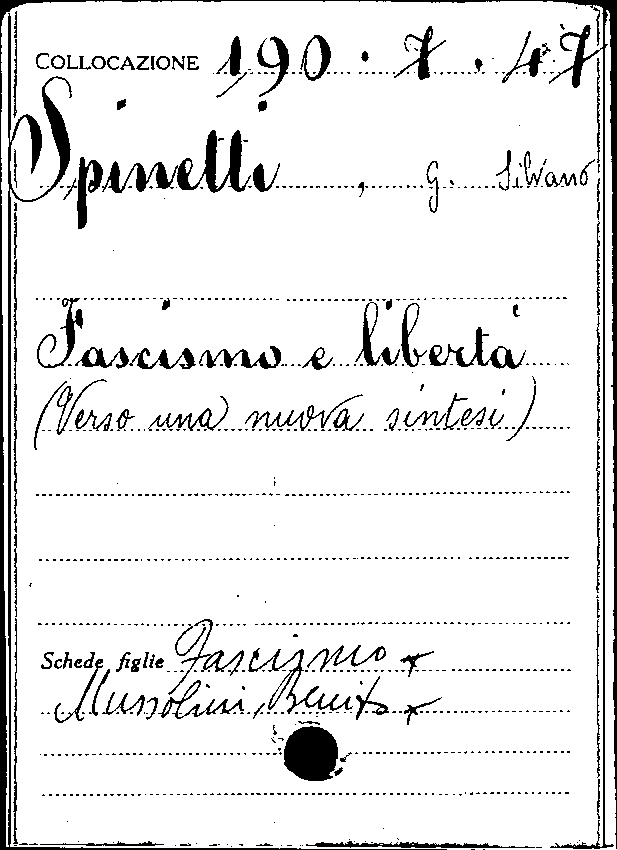 COLLOCAZIONE 190.7.47
Spinetti, G. Silvano
Fascismo e libertà
(Verso una nuova sintesi)
Schede figlie Fascismo x
Mussolini, Benito x